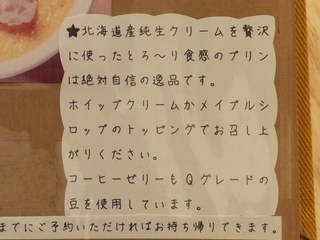 ★北海道産純生クリームを贅沢
に使ったとろ～り食感のプリン
は絶対自信の逸品です。
ホイップクリームかメイプルシ
ロップのトッピングでお召し上
がりください。
コーヒーゼリーもQグレードの
豆を使用しています。
までにご予約いただければお持ち帰りできます。